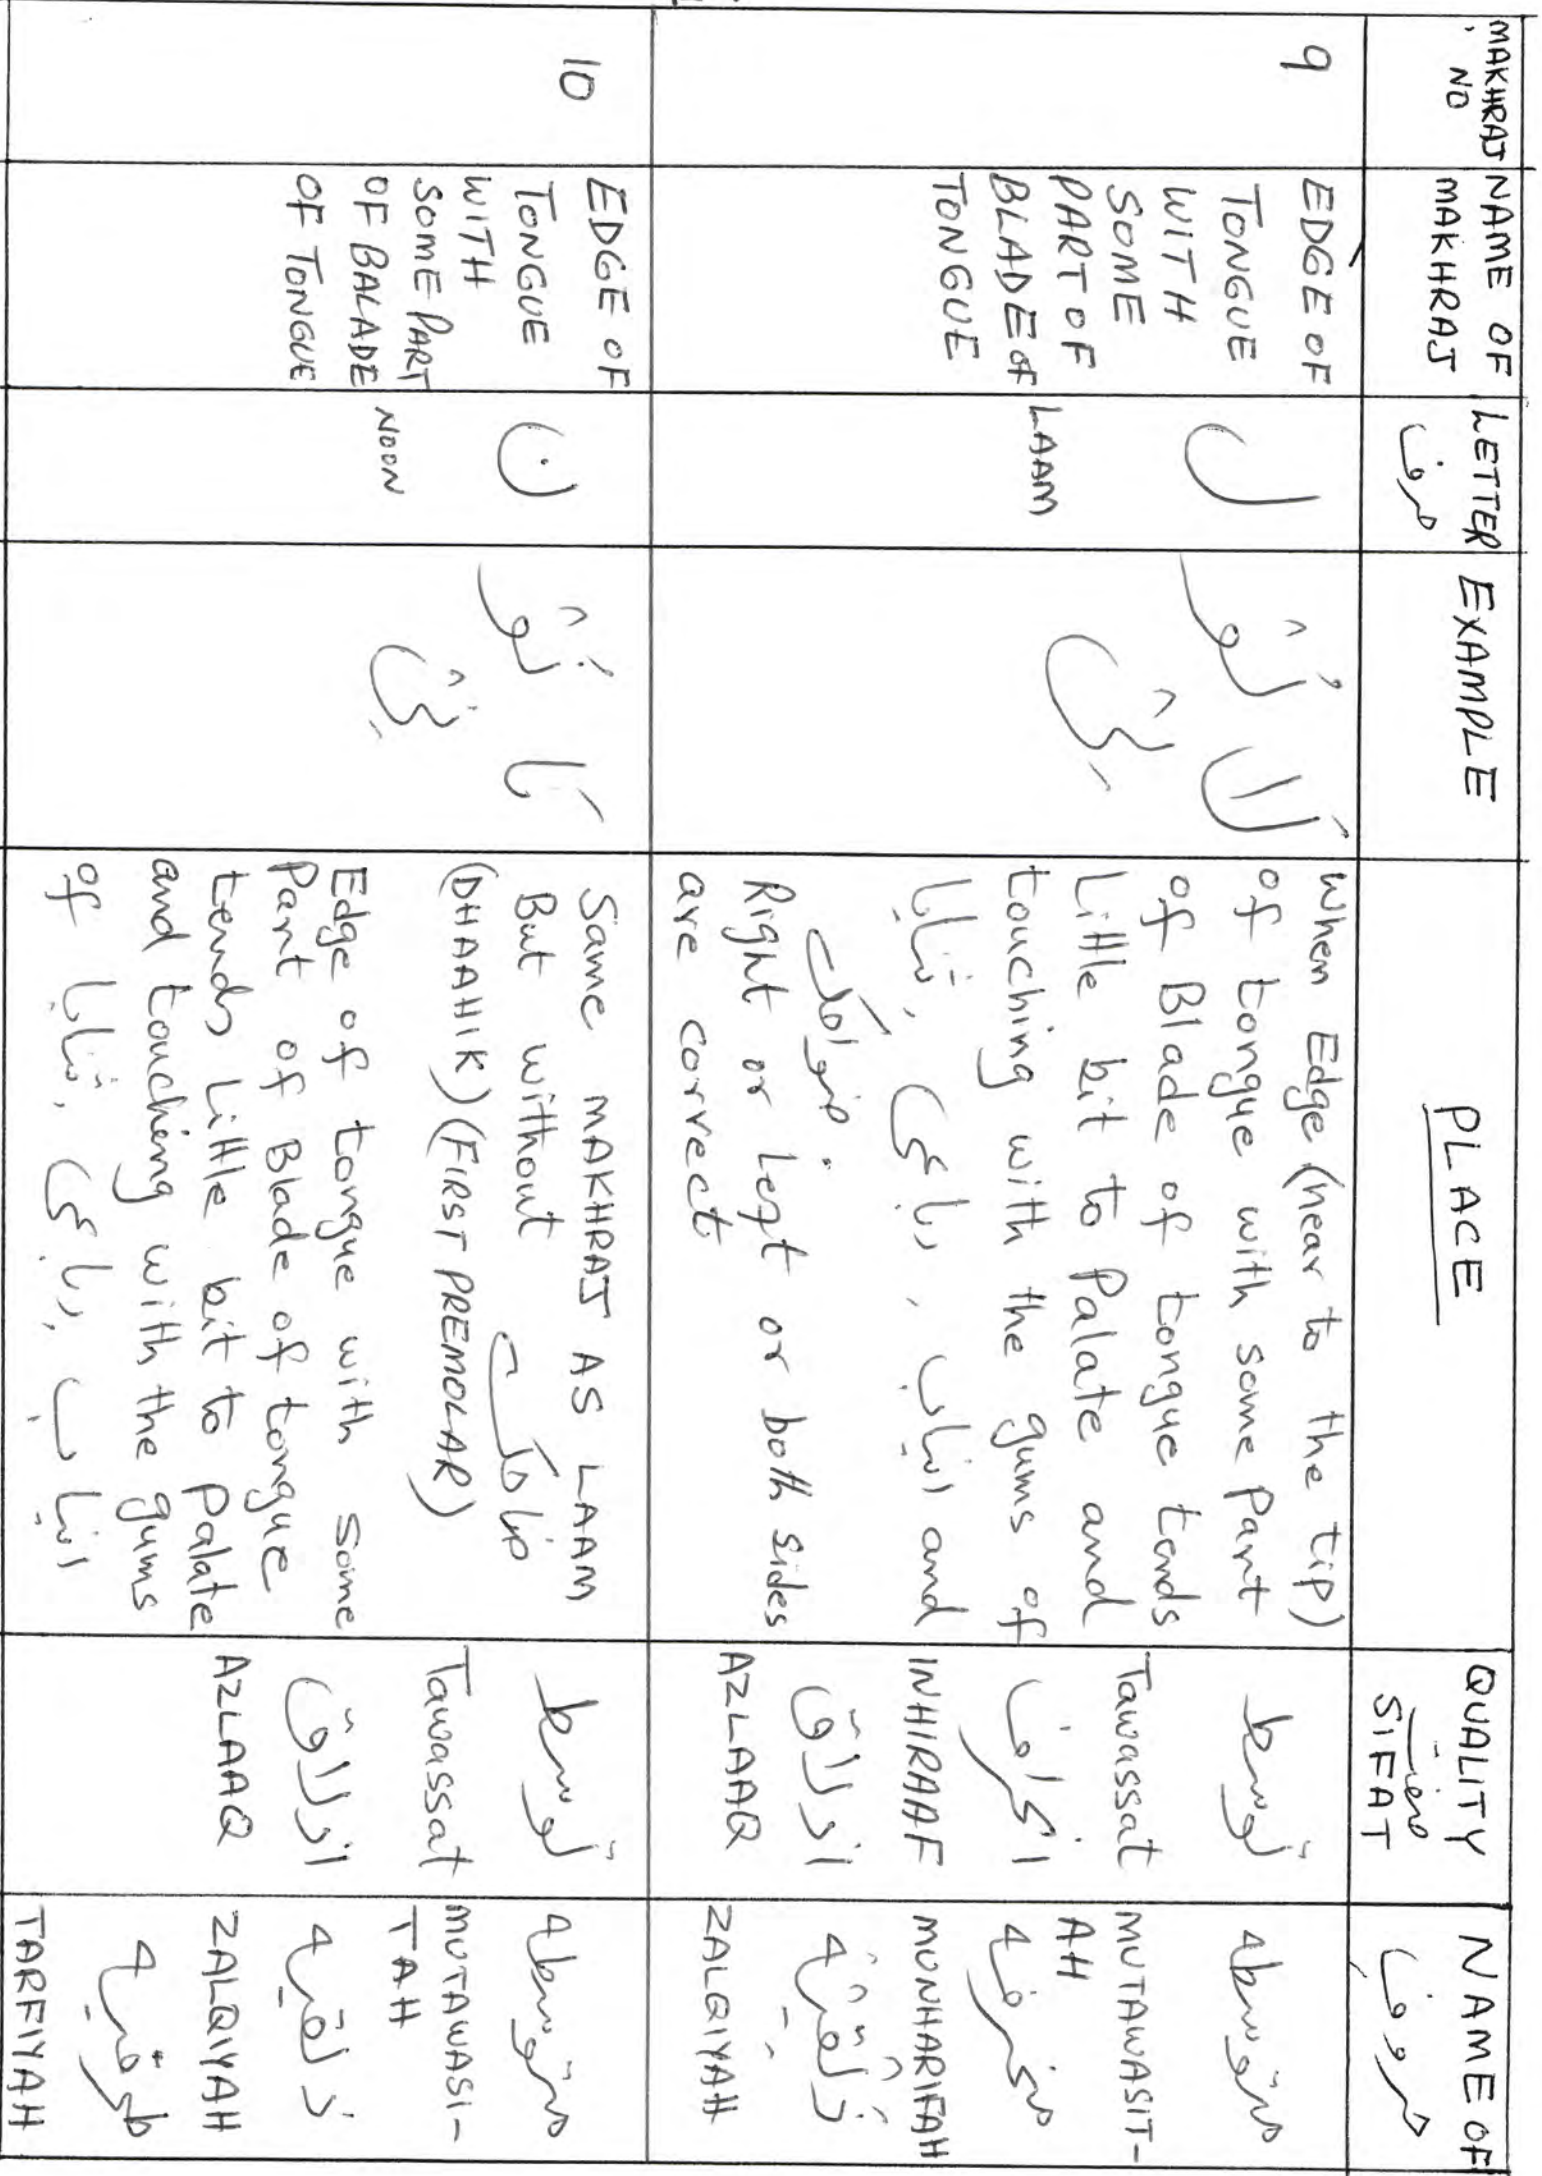 MAKHRAJ
NO
NAME OF
MAKHRAJ
LETTER
حروف
EXAMPLE
PLACE
QUALITY
صفت
SIFAT
NAME OF
حروف
9
EDGE OF
TONGUE
WITH
SOME
PART OF
BLADE OF
TONGUE
ل
LAAM
لَا لُوْ
لِىْ
When Edge (near to the tip)
of tongue with some Part
of Blade of tongue tends
Little bit to Palate and
touching with the gums of
ثنایا, رباعی, انیاب and
ضواحک.
Right or Left or both sides
are correct
توسط
Tawassat
انحراف
INHIRAAF
اذلاق
AZLAAQ
متوسطہ
MUTAWASIT-
AH
منحرفہ
MUNHARIFAH
ذلقیہ
ZALQIYAH
10
EDGE OF
TONGUE
WITH
SOME PART
OF BALADE
OF TONGUE
ن
NOON
نَا نُوْ
نِىْ
Same MAKHRAJ AS LAAM
But without ضاحک
(DHAAHIK) (FIRST PREMOLAR)
Edge of tongue with some
Part of Blade of tongue
tends Little bit to Palate
and touching with the gums
of ثنایا, رباعی, انیاب
توسط
Tawassat
اذلاق
AZLAAQ
متوسطہ
MUTAWASI-
TAH
ذلقیہ
ZALQIYAH
طرفیہ
TARFIYAH